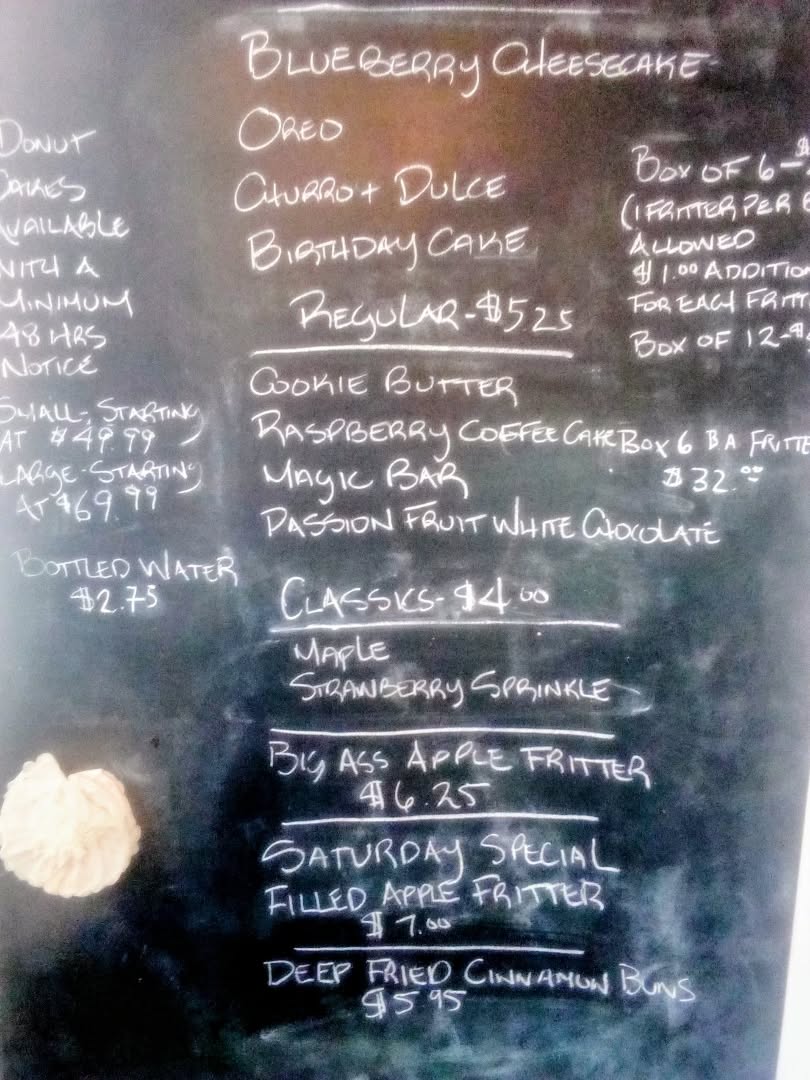 BLUEBERRY CHEESECAKE
OREO
CHURRO + DULCE
BIRTHDAY CAKE
REGULAR - $5.25
COOKIE BUTTER
RASPBERRY COFFEE CAKE
MAGIC BAR
PASSION FRUIT WHITE CHOCOLATE
CLASSICS - $4.00
MAPLE
STRAWBERRY SPRINKLE
BIG ASS APPLE FRITTER
$6.25
SATURDAY SPECIAL
FILLED APPLE FRITTER
$7.00
DEEP FRIED CINNAMON BUNS
$5.95
DONUT
CAKES
AVAILABLE
WITH A
MINIMUM
48 HRS
NOTICE
SMALL - STARTING
AT $49.99
LARGE - STARTING
AT $69.99
BOTTLED WATER
$2.75
BOX OF 6 - $
(1 FRITTER PER
ALLOWED
$1.00 ADDITIO
FOR EACH FRITT
BOX OF 12 - $
BOX 6 BA FRITTE
$32.00